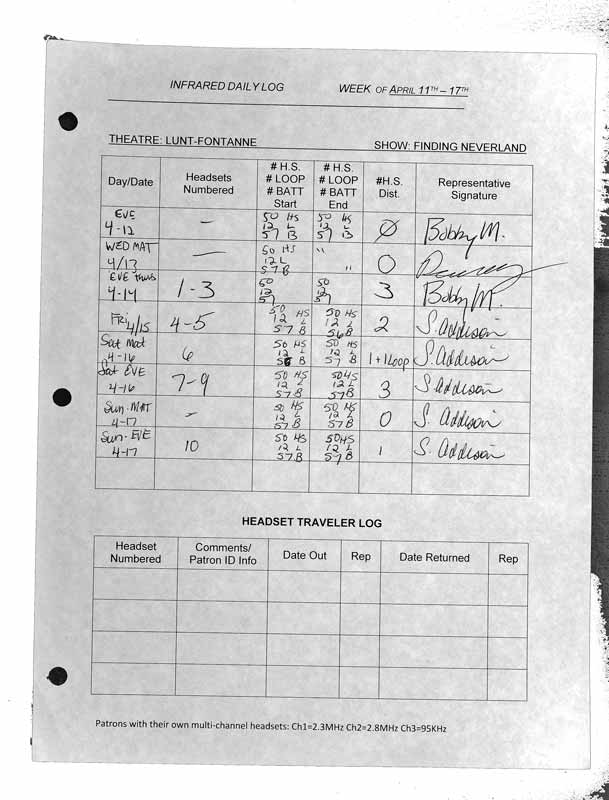 INFRARED DAILY LOG WEEK OF APRIL 11TH – 17TH
THEATRE: LUNT-FONTANNE SHOW: FINDING NEVERLAND
Day/Date Headsets Numbered # H.S. # LOOP # BATT Start # H.S. # LOOP # BATT End #H.S. Dist. Representative Signature
EVE 4-12 – 50 HS 12 L 57 B 50 HS 12 L 57 B 0 Bobby M.
WED MAT 4/17 — 50 HS 12 L 57 B " " 0
EVE thurs 4-14 1-3 50 12 57 50 12 57 3 Bobby M.
Fri 4/15 4-5 50 HS 12 L 57 B 50 HS 12 L 56 B 2 S. Addison
Sat Mat 4-16 6 50 HS 12 L 56 B 50 HS 12 L 57 B 1+1 Loop S. Addison
Sat EVE 4-16 7-9 50 HS 12 L 57 B 50 HS 12 L 57 B 3 S. Addison
Sun-MAT 4-17 - 50 HS 12 L 57 B 50 HS 12 L 57 B 0 S. Addison
Sun-EVE 4-17 10 50 HS 12 L 57 B 50 HS 12 L 57 B 1 S. Addison
HEADSET TRAVELER LOG
Headset Numbered Comments/ Patron ID Info Date Out Rep Date Returned Rep
Patrons with their own multi-channel headsets: Ch1=2.3MHz Ch2=2.8MHz Ch3=95KHz